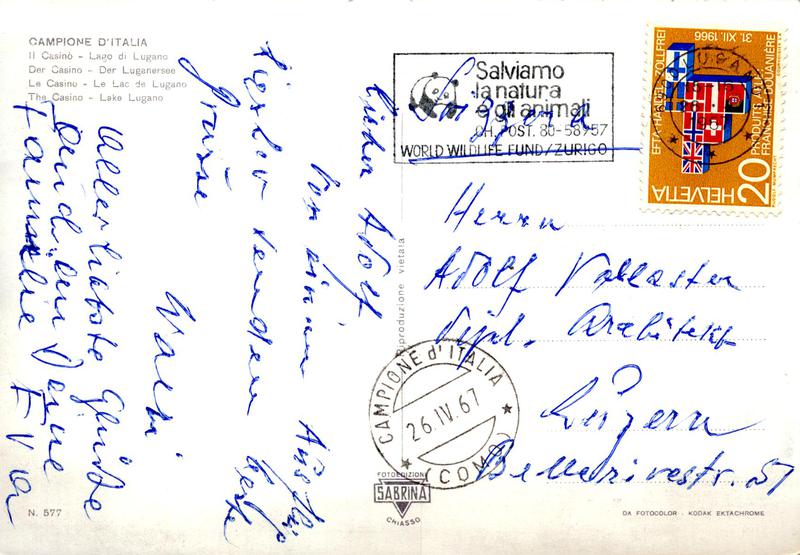 CAMPIONE D'ITALIA
Il Casinò - Lago di Lugano
Der Casino - Der Luganersee
Le Casino - Le Lac de Lugano
The Casino - Lake Lugano
Salviamo
la natura
e gli animali
CH. POST. 80-58957
WORLD WILDLIFE FUND/ZURIGO
EFTA-HANDEL-ZOLLFREI
31. XII. 1966
PRODUITS AELE
FRANCHISE DOUANIÈRE
HELVETIA
20
Lieber Adolf
Von einem
senden
Grüsse
Walti
Allerliebste Grüsse
Deine
Familie Eva
Herrn
Adolf Vallaster
Dipl. Architekt
Luzern
Bellerivestr. 51
Riproduzione vietata
CAMPIONE d'ITALIA
26.IV.67
(COMO)
FOTOEDIZIONI
SABRINA
CHIASSO
N. 577
DA FOTOCOLOR - KODAK EKTACHROME